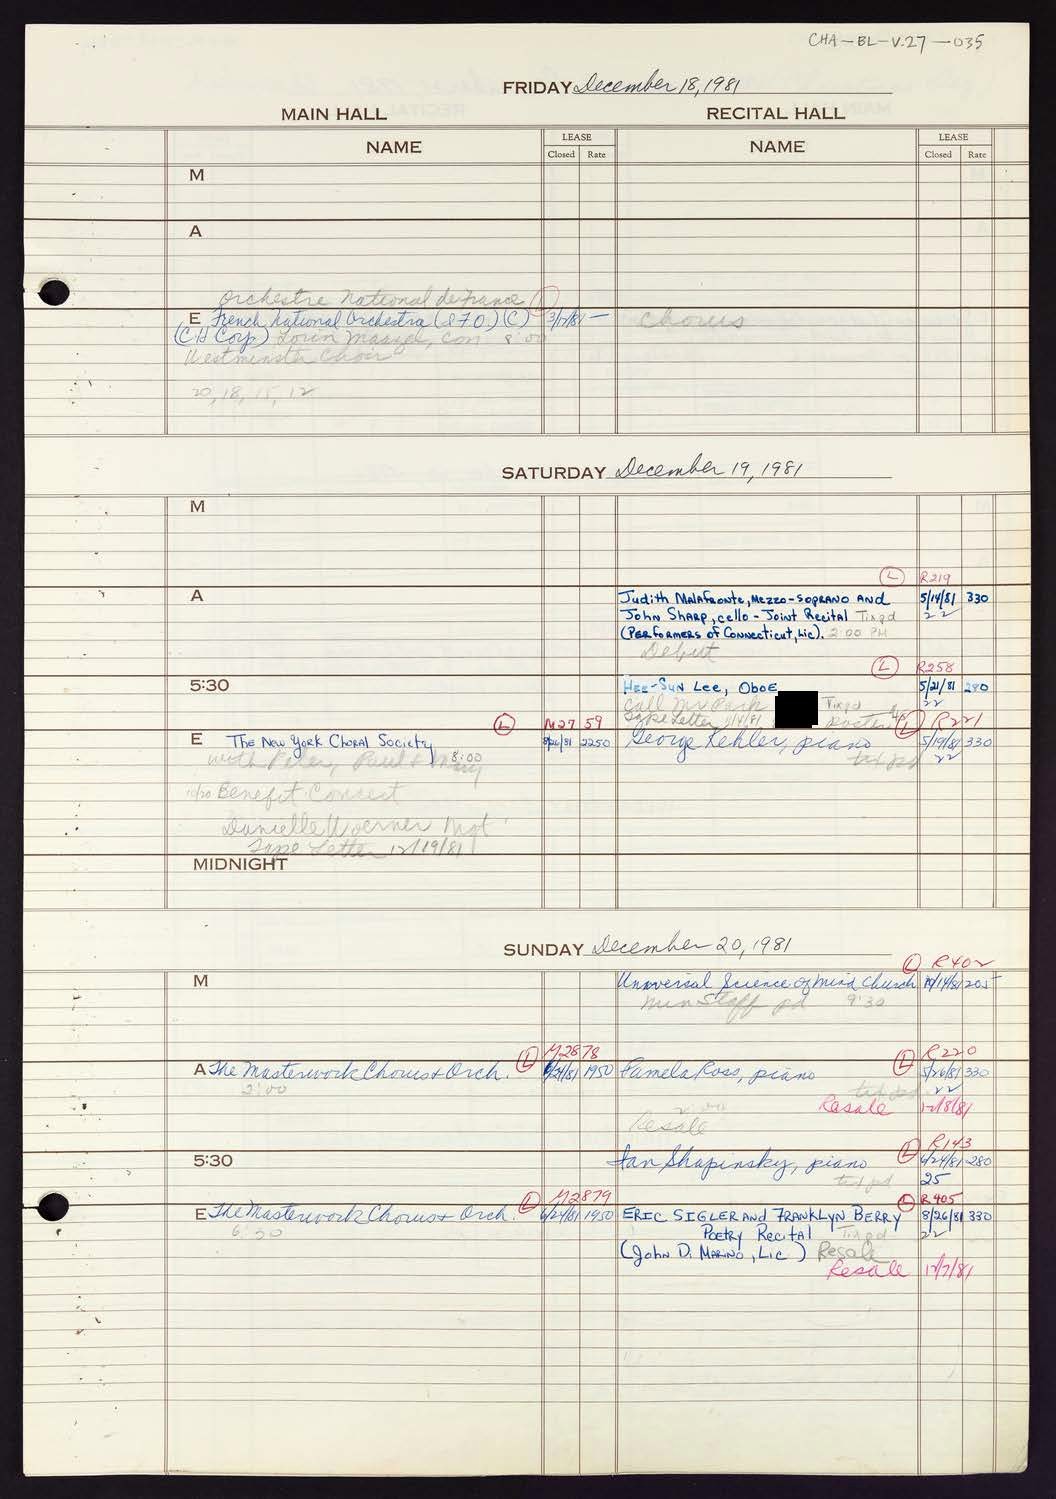 CHA-BL-V.27-035
FRIDAY December 18, 1981
MAIN HALL RECITAL HALL
NAME LEASE Closed Rate NAME LEASE Closed Rate
M
A
Orchestre National de France L
E French National Orchestra (870) (C) 3/17/81 — Chorus
(CH Corp) Lorin Maazel, con 8:00
Westminster Choir
20, 18, 15, 12
SATURDAY December 19, 1981
M
L R219
A Judith Malafronte, Mezzo-Soprano and 5/14/81 330
John Sharp, cello - Joint Recital Tix pd 22
(Performers of Connecticut, Lic). 2:00 PM
Debut
L R258
5:30 Hee-Sun Lee, Oboe 5/21/81 280
Call Mr Park Tix pd 22
Tape Letter 11/4/81 poster
L M27 59 L R221
E The New York Choral Society 2250 George Kehler, piano 5/19/81 330
with Peter, Paul & Mary 8:00 txt pd 22
10/20 Benefit Concert
Danielle Woerner Mgt
Tape Letter 12/19/81
MIDNIGHT
SUNDAY December 20, 1981
L R402
M Universal Science of Mind Church 10/14/81 205
min Staff pd 9:30
L M2878 L R220
A The Masterwork Chorus & Orch. 6/24/81 1950 Pamela Ross, piano 5/26/81 330
2:00 txt pd 22
Resale 12/8/81
2:00
Resale
L R143
5:30 Ian Shapinsky, piano 6/24/81 280
txt pd 25
L M2879 L R405
E The Masterwork Chorus & Orch. 6/24/81 1950 ERIC SIGLER and FRANKLYN BERRY 8/26/81 330
6:30 Poetry Recital Tix pd 22
(John D. Marino, Lic) Resale
Resale 12/7/81